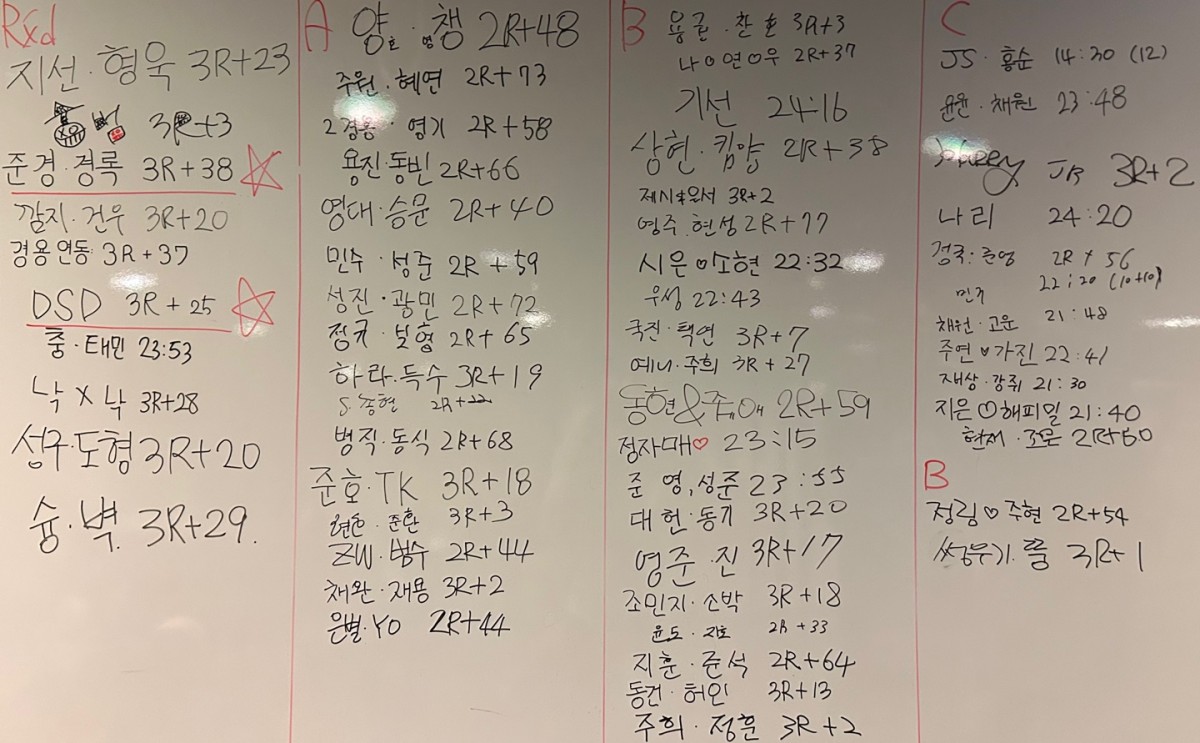 Rxd
지선·형욱 3R+23
범 3R+3
준경·경록 3R+38
깜지·건우 3R+20
경용연동 3R+37
DSD 3R+25
훔·태민 23:53
낙X낙 3R+28
성구·도형 3R+20
슝·벽. 3R+29.
A
양호·영챙 2R+48
주원·혜연 2R+73
2경용·영기 2R+58
용진·동빈 2R+66
영대·승문 2R+40
민수·성준 2R+59
성진·광민 2R+72
정규·보형 2R+65
하라·득수 3R+19
S·종현 2R+22
병직·동식 2R+68
준호·TK 3R+18
준환 3R+3
ZW·범수 2R+44
채완·재용 3R+2
은별·YO 2R+44
B
용근·찬호 3R+3
나♡연♡우 2R+37
기선 24:16
상현·킴양 2R+38
제시&은서 3R+2
영주·현성 2R+77
시은♡이소현 22:32
우성 22:43
국진·택연 3R+7
예나·주희 3R+27
동현& 2R+59
정자매♡ 23:15
준영,성준 23:55
대헌·동기 3R+20
영준·진 3R+17
조민지·소박 3R+18
윤도·지호 2R+33
지훈·준석 2R+64
동건·허인 3R+13
주희·정훈 3R+2
C
JS·홍순 14:30 (12)
윤윤·채원 23:48
JB 3R+2
나리 24:20
정국·준영 2R+56
민규 22:20 (10+10)
채원·고운 21:48
주연♡가진 22:41
재상·광쥐 21:30
지은♡해피밀 21:40
현제·조은 2R+60
B
정림♡주현 2R+54
쌈우기·쭘 3R+1